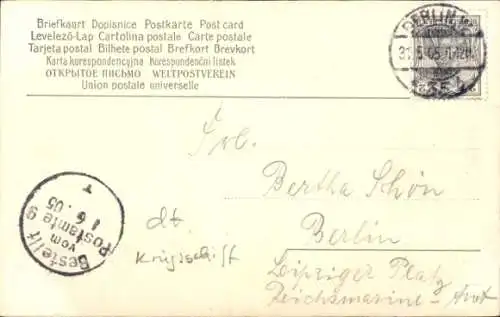 Briefkaart Dopisnice Postkarte Post card
Levelező-Lap Cartolina postale Carte postale
Tarjeta postal Bilhete postal Brefkort Brevkort
Karta korespondencyjna Korespondenční lístek
ОТКРЫТОЕ ПИСЬМО WELTPOSTVEREIN
Union postale universelle
BERLIN
Frl.
Bertha Schön
Berlin
Leipziger Platz
Reichsmarine-Amt
dt.
Kriegsschiff
Bestellt
vom
Postamte 9
1 6 . 05